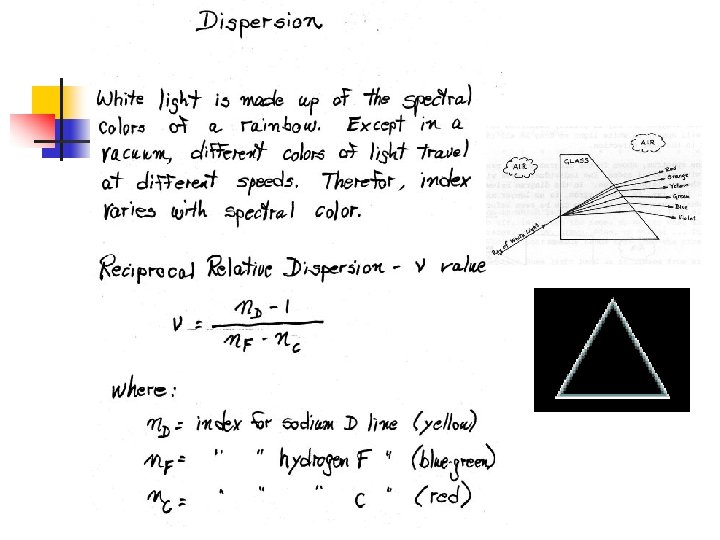 Dispersion
White light is made up of the spectral
colors of a rainbow. Except in a
vacuum, different colors of light travel
at different speeds. Therefor, index
varies with spectral color.
AIR
AIR
GLASS
Red
Orange
Yellow
Green
Blue
Violet
Ray of White Light
Reciprocal Relative Dispersion - ν value
ν = n_D - 1 / n_F - n_C
where:
n_D = index for sodium D line (yellow)
n_F = " " hydrogen F " (blue-green)
n_C = " " " C " (red)